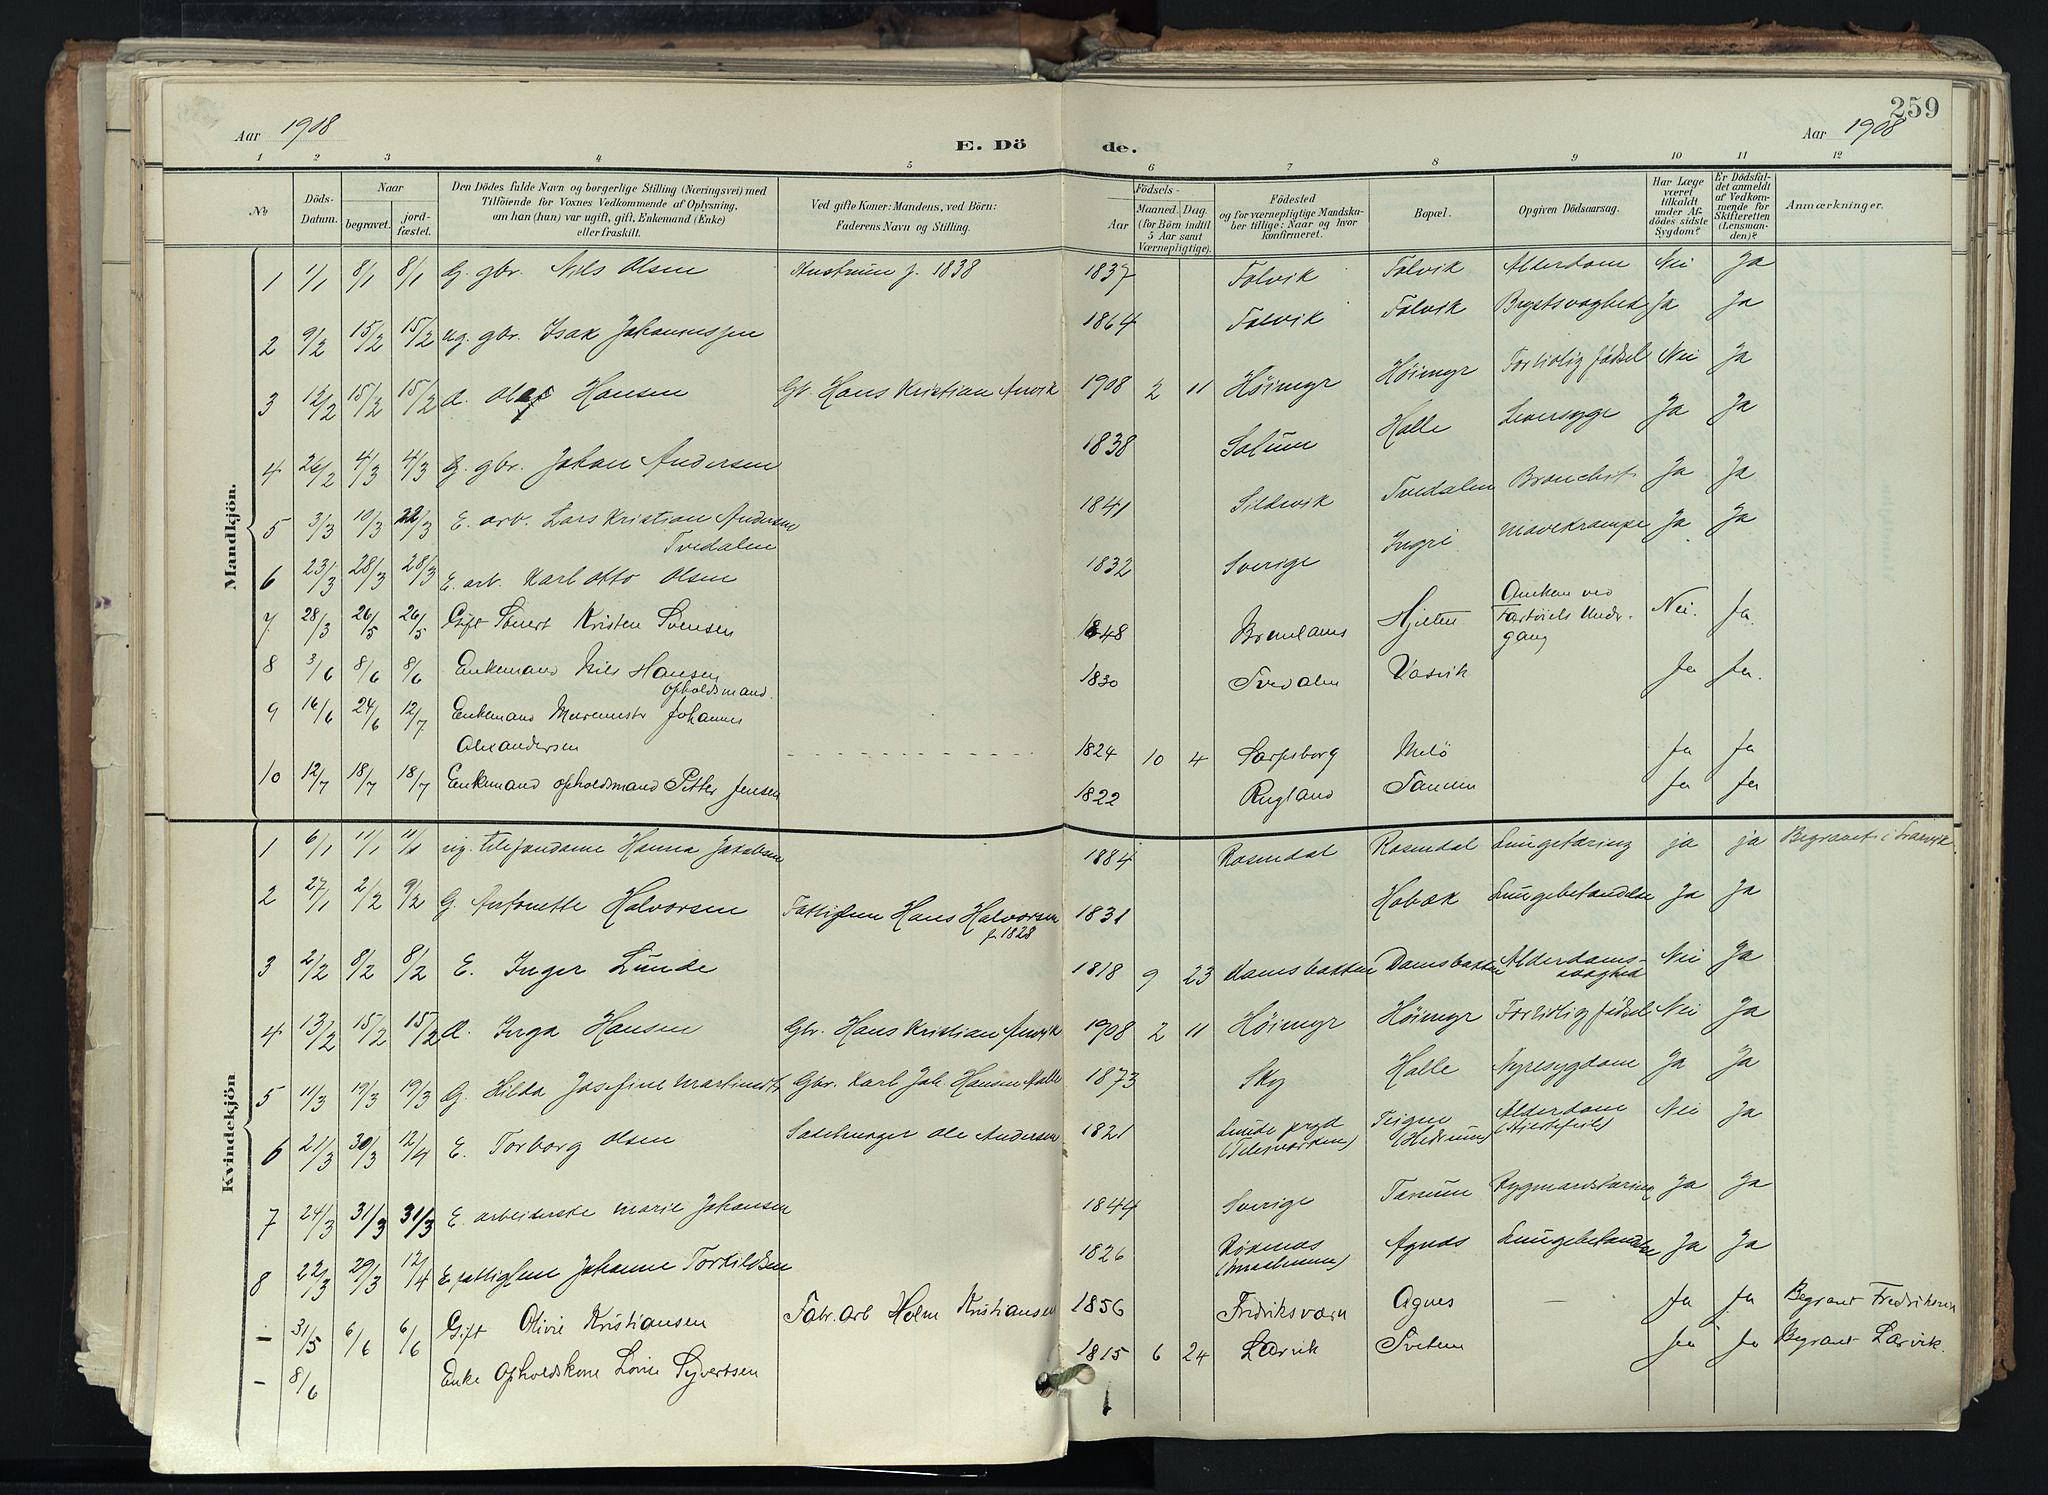 259
Aar 1908
E. Dö de.
Aar 1908
1 2 3 4 5 6 7 8 9 10 11 12
No
Döds-
Datum.
Naar
begravet.
jord-
fæstet.
Den Dödes fulde Navn og borgerlige Stilling (Næringsvei) med
Tilföiende for Voxnes Vedkommende af Oplysning,
om han (hun) var ugift, gift, Enkemand (Enke)
eller fraskilt.
Ved gifte Koner: Mandens, ved Börn:
Faderens Navn og Stilling.
Födsels-
Aar
Maaned. Dag.
(for Börn indtil
5 Aar samt
Værnepligtige).
Födested
og for værnepligtige Mandska-
ber tillige: Naar og hvor
konfirmeret.
Bopæl.
Opgiven Dödsaarsag.
Har Læge
været
tilkaldt
under Af-
dödes sidste
Sygdom?
Er Dödsfal-
det anmeldt
af Vedkom-
mende for
Skifteretten
(Lensman-
den)?
Anmærkninger.
Mandkjön.
1 1/1 8/1 8/1 G. gbr. Nils Olsen f. 1838 1837 Folvik Folvik Alderdom Nei Ja
2 9/2 15/2 15/2 ug. gbr. Isak Johannessen 1864 Folvik Folvik Brystsvaghed Ja Ja
3 12/2 15/2 15/2 d. Olaf Hansen Gb. Hans Kristian Anvik 1908 2 11 Höimyr Höimyr Fortidlig födsel Nei Ja
4 26/2 4/3 4/3 G. gbr. Johan Andersen 1838 Solum Halle Leversyge Ja Ja
5 3/3 10/3 22/3 E. arb. Lars Kristian Andersen 1841 Sildvik Tvedalen Bronchit Ja Ja
Tvedalen
6 23/3 28/3 28/3 E. arb. Karl Otto Olsen 1832 Sverige Ingri Mavekrampe Ja Ja
7 28/3 26/5 26/5 Gift Kristen Svensen 1848 Hjelten Omkom ved Nei. Ja.
Fartöiets Under-
gang
8 3/6 8/6 8/6 Enkemand Nils Hansen 1830 Tvedalen Vasvik Ja Ja.
opholdsmand.
9 16/6 24/6 12/7 Enkemand Murmester Johannes
Alexandersen 1824 10 4 Sarpsborg Melö Ja Ja
10 12/7 18/7 18/7 Enkemand opholdsmand Petter Jensen 1822 Rugland Tanum Ja Ja
Kvindekjön
1 6/1 11/1 11/1 ug. telefondame Hanna Jakobsen 1884 Rosendal Rosendal Lungetæring ja ja Begravet i
2 27/1 2/2 9/2 G. Antonette Halvorsen Fattiglem Hans Halvorsen 1831 Hobæk Lungebetændelse Ja Ja
f. 1828
3 2/2 8/2 8/2 E. Inger Lunde 1818 9 23 Damsbakken Damsbakken Alderdoms- Nei Ja
svaghed
4 13/2 15/2 15/2 d. Inga Hansen Gbr. Hans Kristian Anvik 1908 2 11 Höimyr Höimyr Fortidlig födsel Nei Ja
5 11/3 19/3 19/3 G. Hilda Josefine Martinsdt. Gbr. Karl Joh. Hansen Halle 1873 Sky Halle Nyresygdom Ja Ja
6 21/3 30/3 12/4 E. Torborg Olsen Ole Andersen 1821 Lunde prgd Teigne Alderdom Nei Ja
(Telemarken) (Hedrum) (Hjertefeil)
7 24/3 31/3 31/3 E. arbeiderske Marie Johansen 1844 Sverige Tanum Rygmarvstæring Ja Ja
8 22/3 29/3 12/4 E. fattiglem Johanne Torkildsen 1826 Agnes Lungebetændelse Ja Ja
- 31/5 6/6 6/6 Gift Olivie Kristiansen Fabr. arb Holm Kristiansen 1856 Fredriksværn Agnes — Ja Ja Begravet Fredriksværn
- 8/6 Enke opholdskone Lovise Syvertsen 1815 6 24 Larvik Tveten Ja Ja Begravet Larvik.